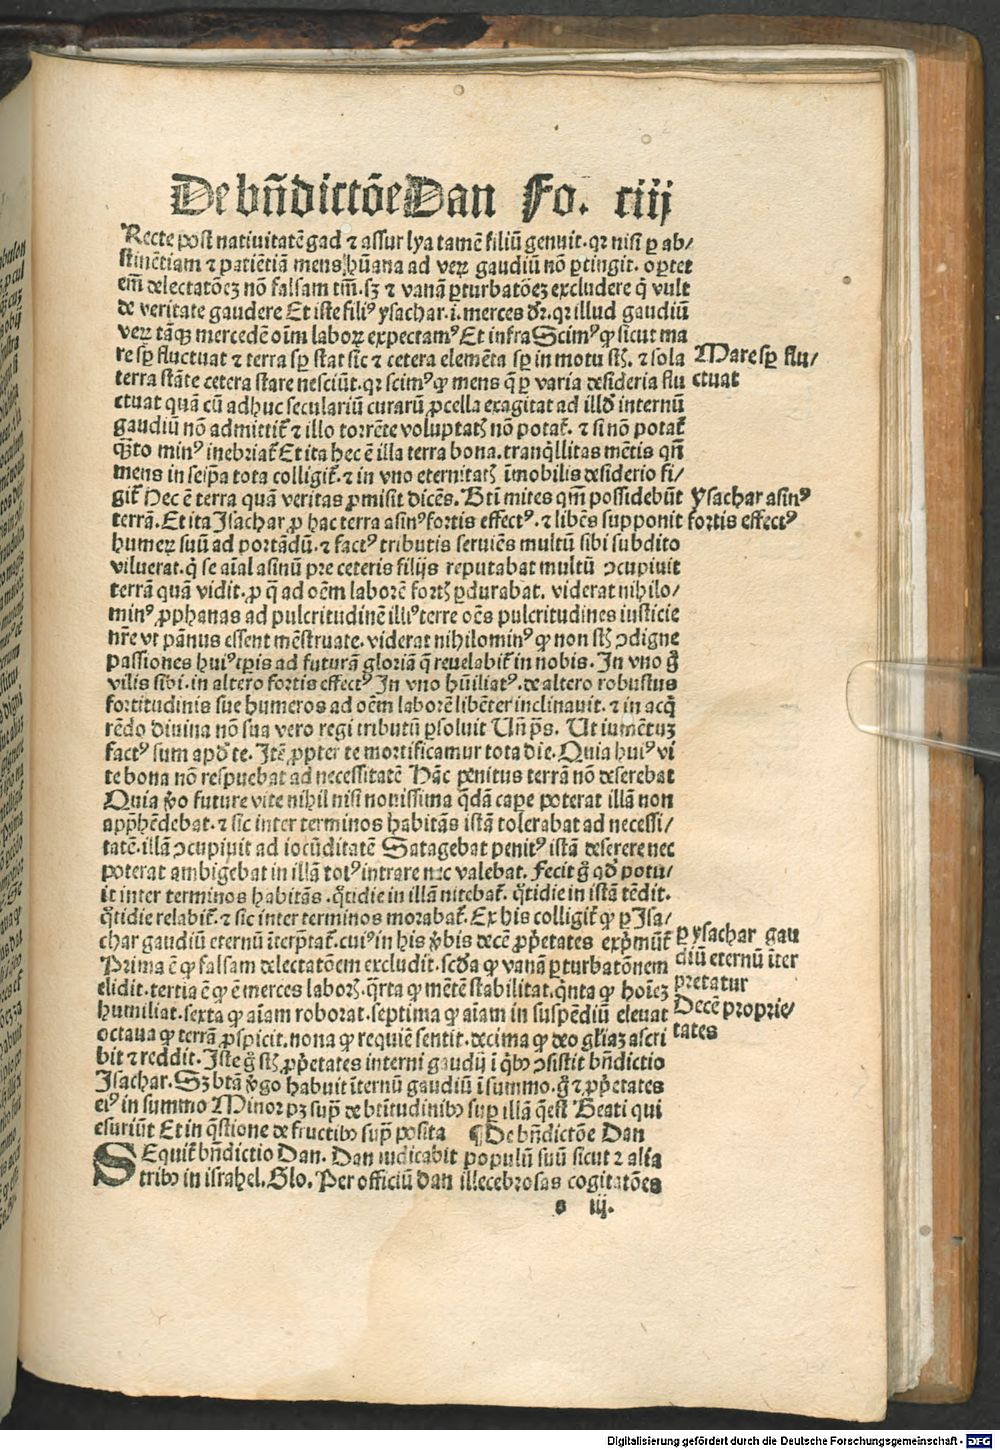 De bn̄dictōe Dan Fo. ciij
Recte post natiuitatē gad ⁊ assur lya tamē filiū genuit. qꝛ nisi ꝑ ab/
stinētiam ⁊ patiētiā mens hūana ad veꝝ gaudiū nō ꝑtingit. oꝑtet
em̄ delectatōeꝫ nō falsam tm̄. sꝫ ⁊ vanā ꝑturbatōeꝫ excludere q̇ vult
de veritate gaudere Et iste filiꝰ ysachar .i. merces dr̄. qꝛ illud gaudiū
veꝝ tāqꝫ mercedē oīm laboꝝ expectamꝰ Et infra Scimꝰ ꝙ sicut ma
re sꝑ fluctuat ⁊ terra sꝑ stat sic ⁊ cetera elemēta sꝑ in motu st̄. ⁊ sola
terra stāte cetera stare nesciūt. qꝛ scimꝰ ꝙ mens q̄ ꝑ varia desideria flu
ctuat quā cū adhuc seculariū curarū ꝓcella exagitat ad illd̄ internū
gaudiū nō admittit̄ ⁊ illo torrēte voluptatꝭ nō potat̄. ⁊ si nō potat̄
q̄to minꝰ inebriat̄ Et ita hec ē illa terra bona. tranq̇llitas mētis qn̄
mens in seip̄a tota colligit̄. ⁊ in vno eternitatꝭ īmobilis desiderio fi/
git̄ Hec ē terra quā veritas ꝓmisit dicēs. Bti̅ mites qm̄ possidebūt
terrā. Et ita Isachar ꝓ hac terra asinꝰ fortis effectꝰ. ⁊ libēs supponit
humeꝝ suū ad portādū. ⁊ factꝰ tributis seruiēs multū sibi subdito
viluerat. q̇ se aīal asinū pre ceteris filijs reputabat multū ↄcupiuit
terrā quā vidit. ꝓ q̄ ad oēm laborē fortꝭ ꝑdurabat. viderat nihilo/
minꝰ ꝓphanas ad pulcritudinē illiꝰ terre oēs pulcritudines iusticie
nr̄e vt pānus essent mēstruate. viderat nihilominꝰ ꝙ non st̄ ↄdigne
passiones huiꝰ tp̄is ad futurā gloriā q̄ reuelabit̄ in nobis. In vno g̊
vilis sibi. in altero fortis effectꝰ In vno hūiliatꝰ. de altero robustus
fortitudinis sue humeros ad oēm laborē libēter inclinauit. ⁊ in acq̇
rēdo diuina nō sua vero regi tributū ꝑsoluit Un̄ p̄s. Ut iumētuꝫ
factꝰ sum apd̄ te. Itē ꝓpter te mortificamur tota die. Quia huiꝰ vi
te bona nō respuebat ad necessitatē Hāc penitus terrā nō deserebat
Quia v̊o future vite nihil nisi nouissima q̄dā cape poterat illā non
app̄hēdebat. ⁊ sic inter terminos habitās istā tolerabat ad necessi/
tatē. illā ↄcupiuit ad iocūditatē Satagebat penitꝰ istā deserere nec
poterat ambigebat in illā totꝰ intrare nec valebat. Fecit g̊ qd̄ potu/
it inter terminos habitās. q̊tidie in illā nitebat̄. q̊tidie in istā tēdit.
q̊tidie relabit̄. ⁊ sic inter terminos morabat̄. Ex his colligit̄ ꝙ ꝑ Isa/
char gaudiū eternū īterp̄tat̄. cuiꝰ in his v̊bis decē ꝓp̄etates exp̄mūt̄
Prima ē ꝙ falsam delectatōem excludit. scd̄a ꝙ vanā ꝑturbatōnem
elidit. tertia ē ꝙ ē merces laborꝭ. q̄rta ꝙ mētē stabilitat. q̇nta ꝙ hoīeꝫ
humiliat. sexta ꝙ aīam roborat. septima ꝙ aiam in suspēdiū eleuat
octaua ꝙ terrā ꝓspicit. nona ꝙ requiē sentit. decima ꝙ deo gl̄iaꝫ ascri
bit ⁊ reddit. Iste g̊ st̄ ꝓp̄etates interni gaudij ī q̇bꝰ ↄsistit bn̄dictio
Isachar. Sꝫ btā v̇go habuit īternū gaudiū ī summo. g̊ ⁊ ꝓp̄etates
eiꝰ in summo Minor pꝫ sup̄ de btītudinibꝰ suꝑ illā q̄ est Beati qui
esuriūt Et in q̄stione de fructibꝰ sup̄ posita ¶ De bn̄dictōe Dan
SEquit̄ bn̄dictio Dan. Dan iudicabit populū suū sicut ⁊ alia
tribꝰ in israhel. Glo. Per officiū dan illecebrosas cogitatōes
s iij.
Mare sꝑ flu/
ctuat
Ysachar asinꝰ
fortis effectꝰ
ꝑ ysachar gau
diū eternū īter
pretatur
Decē proprie/
tates
Digitalisierung gefördert durch die Deutsche Forschungsgemeinschaft - DFG